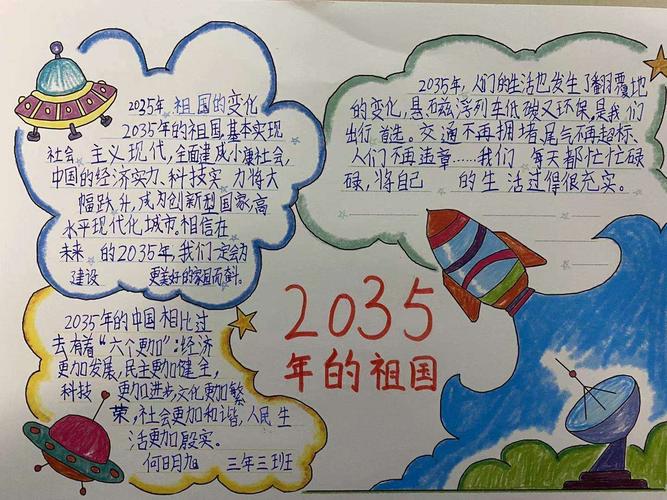 2035年祖国的变化
2035年的祖国,基本实现
社会主义现代,全面建成小康社会,
中国的经济实力、科技实力将大
幅跃升,成为创新型国家,高
水平现代化城市。相信在
未来的2035年,我们一定会为
建设 更美好的家园而
2035年,人们的生活也发生了翻覆地
的变化,悬磁浮列车低碳又环保,是我们
出行首选。交通不再拥堵,尾气不再超标、
人们不再违章……我们 每天都忙忙碌
碌,将自己 的生活过得很充实。
2035
年的祖国
2035年的中国相比过
去有着“六个更加”:经济
更加发展,民主更加健全,
科技 更加进步,文化更加繁
荣,社会更加和谐,人民生
活更加殷实。
何日月旭 三年三班